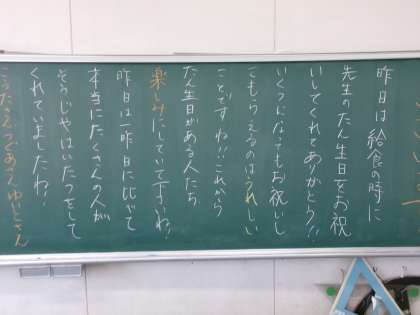 昨日は給食の時に
先生のたん生日をお祝
いしてくれてありがとう!!
いくつになってもお祝いし
てもらえるのはうれしい
ことですね!!これから
たん生日がある人たち
楽しみにしていて下さいね!
昨日は一昨日に比べて
本当にたくさんの人が
そうじやはいたつをして
くれていましたね!
さん ゆいとさん